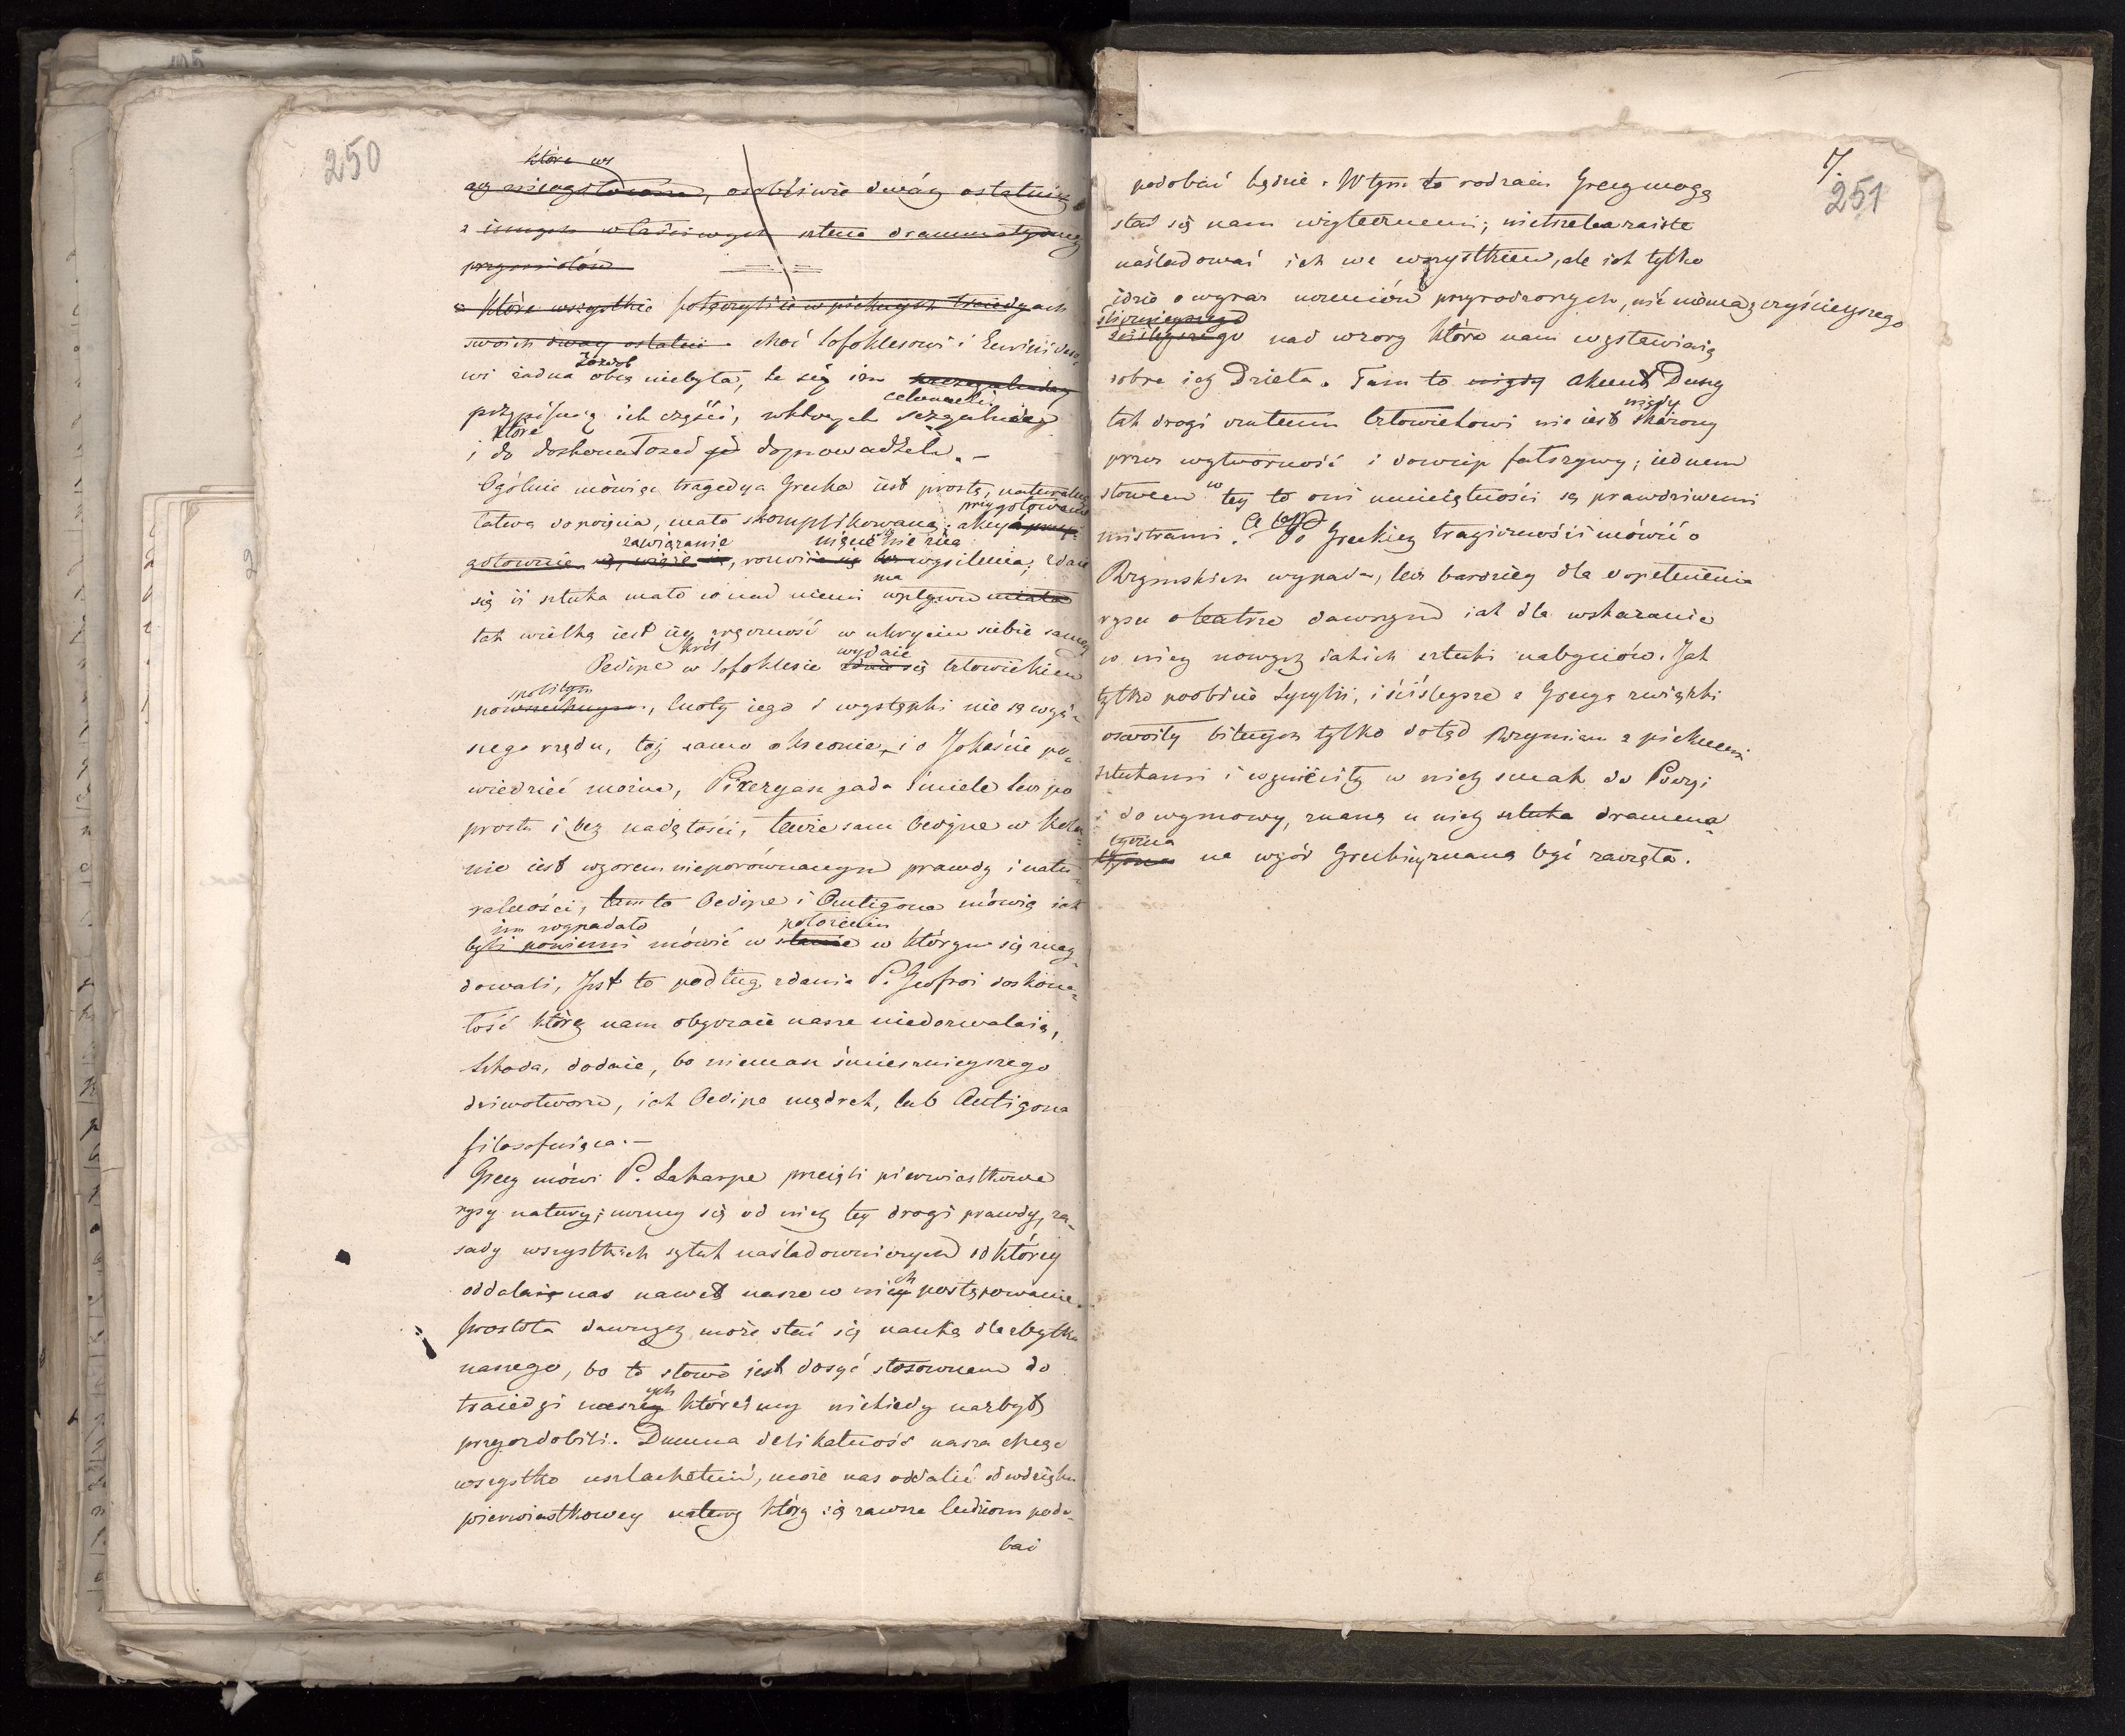 250
które ws
osobliwie dwóch ostatnich
z innych właściwych sztuce drammatyczney
przymiotów
które wszystkie połączyli w pięknych traiedyach
swoich dway ostatni choć Sofoklesowi i Euripideso-
wi żadna obcą niebyła, te się im
celowali
przypisuią ich części, w których szczególniey
które
i do doskonałości doprowadzili. —
Ogólnie mówiąc tragedya Grecka iest prosta, naturalna
przygotowanie
łatwa do poięcia, mało skomplikowana; akcya
zawiązanie nie
gotowanie, bez wysilenia; zdaie
ma
się iż sztuka mało co nad niemi wpływu miała
tak wielka iest iey zręczność w ukryciu siebie samey
Król wydaie
Oedipe w Sofoklesie się człowiekiem
spolitym
powszechnym, cnoty iego i występki nie są wyż-
szego rzędu, toż samo o Kreonie, i o Jokaście po-
wiedzieć można, Tirezyasz gada śmiele lecz po
prostu i bez nadętości, tenże sam Oedipe w Kolo-
nie iest wzorem nieporównanym prawdy i natu-
ralności, tam to Oedipe i Antigona mówią iak
im wypadało położeniu
byli powinni mówić w stanie w którym się znay-
dowali, Jest to podług zdania P. Geofroi doskona-
łość którą nam obyczaie nasze niedozwalaią,
Szkoda, dodaie, bo niemasz śmiesznieyszego
dziwotworu, iak Oedipe mędrek, lub Antigona
filosofuiąca. —
Grecy mówi P. Laharpe przeięli pierwiastkowe
rysy natury; uczmy się od nich tey drogi prawdy, za-
sady wszystkich sztuk naśladowniczych od którey
ch
oddalaią nas nawet nasze w niey postępowanie.
Prostota dawnych może stać się nauką dla zbytku
naszego, bo to słowo iest dosyć stosownem do
ych
traiedyi naszey któreśmy niekiedy nazbyt
przyozdobili. Dumna delikatność nasza chcąc
wszystko uszlachetnić, może nas oddalić od wdzięku
pierwiastkowey natury która się zawsze ludziom podo-
bać
7.
251
podobać będzie. W tym to rodzaiu Grecy mogą
stać się nam użytecznemi; nietrzeba zaiste
naśladować ich we wszystkiem, ale iak tylko
idzie o wyraz uczuciów przyrodzonych, nic niema czyścieyszego
nad wzory które nam wystawiaią
dobre ich Dzieła. Tam to nigdy akcent Duszy
nigdy
tak drogi czułemu człowiekowi nie iest skażony
przez wytworność i dowcip fałszywy; iednem
słowem w tey to oni umieiętności są prawdziwemi
mistrzami. Po Greckiey tragiczności mówić o
Rzymskich wypada, lecz bardziey dla dopełnienia
rysu o teatrze dawnym iak dla wskazania
w niey nowych iakich sztuki nabyciów. Jak
tylko podbicie Sycylii, i ściśleysze z Grecyą związki
oswoiły bitnych tylko dotąd Rzymian z pięknemi
sztukami i wznieciły w nich smak do Poezyi
i do wymowy, znana u nich sztuka dramma-
tyczna
na wzór Greckiey znana być zaczęła.